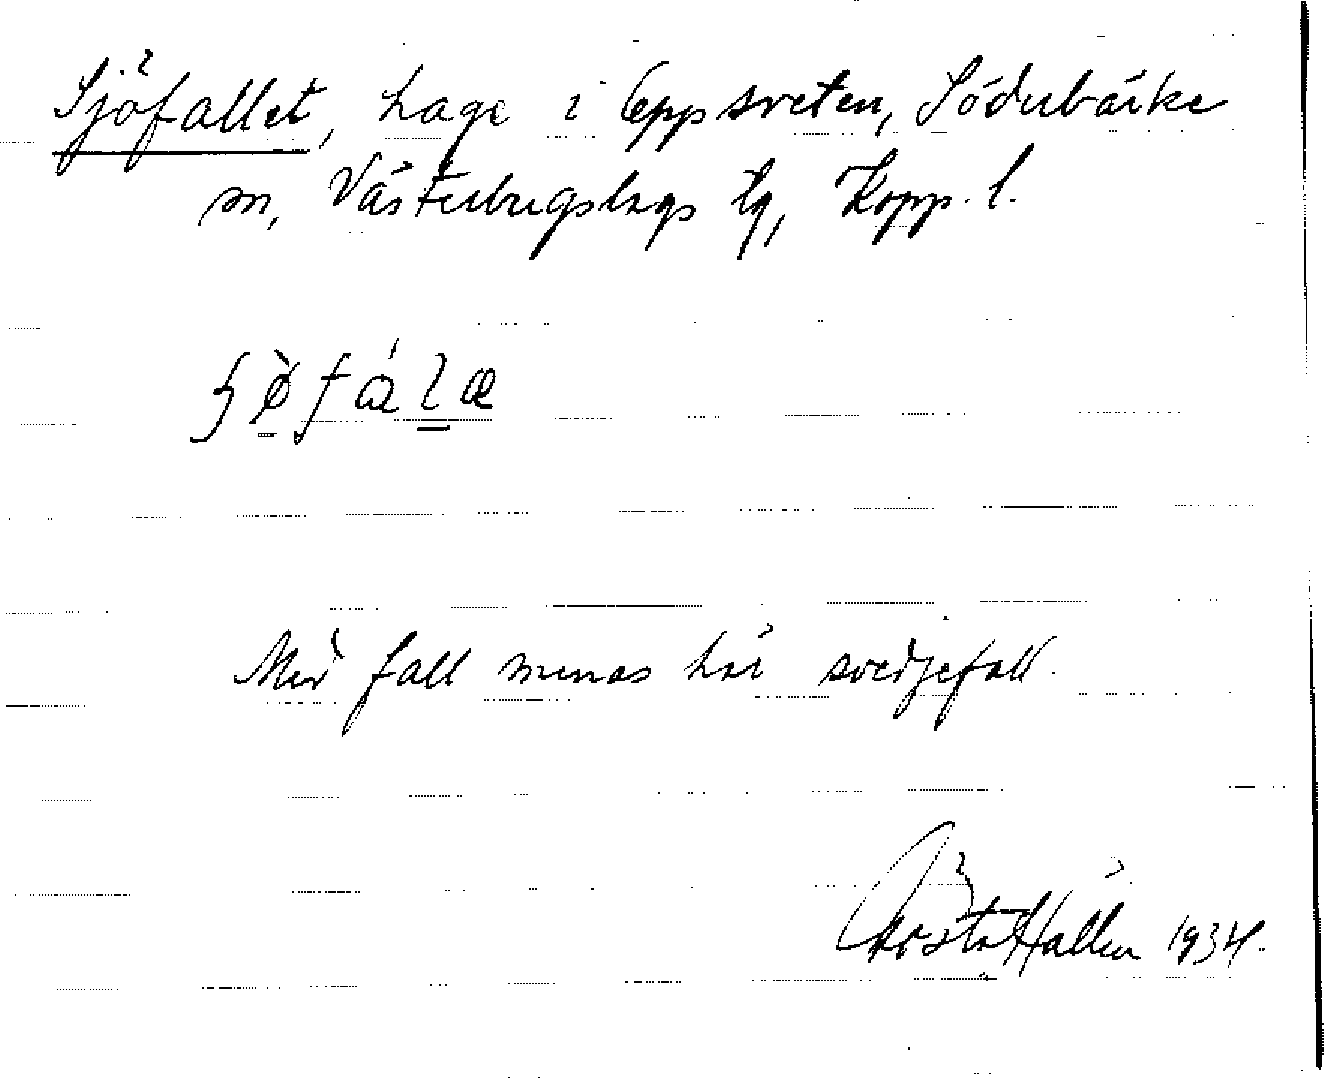 Sjöfallet, hage i Eppsveten, Söderbärke
sn, Västerbergslags tg, Kopp. l.
Med fall menas här svedjefall.
Gösta Hallén 1934.